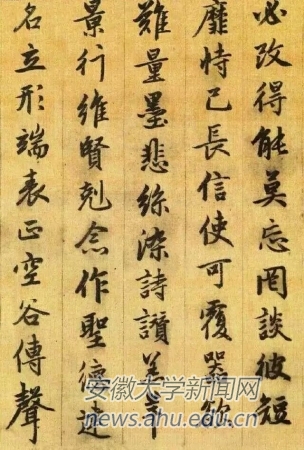 必改得能莫忘罔談彼短
靡恃己長信使可覆器欲
難量墨悲絲染詩讚羔羊
景行維賢剋念作聖德建
名立形端表正空谷傳聲
安徽大学新闻网
www.ahu.edu.cn